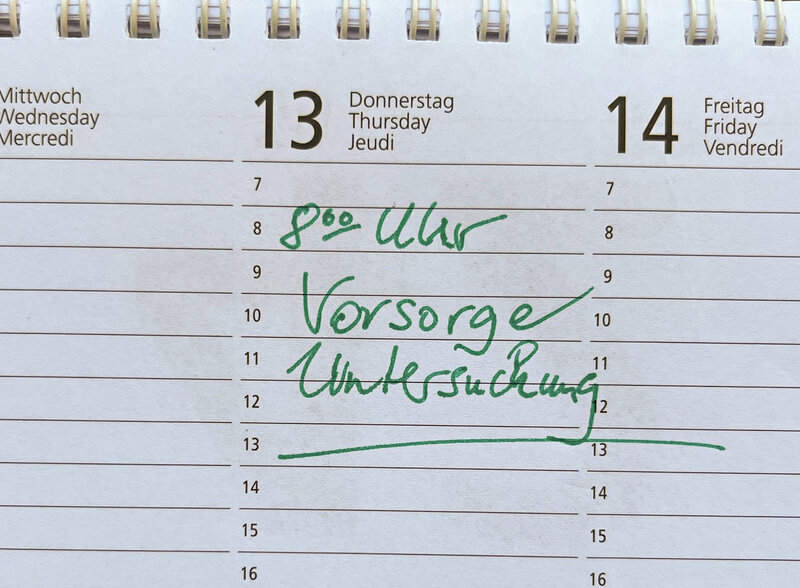 Mittwoch
Wednesday
Mercredi
13
Donnerstag
Thursday
Jeudi
14
Freitag
Friday
Vendredi
7
8
9
10
11
12
13
14
15
16
8⁰⁰ Uhr
Vorsorge
Untersuchung
7
8
9
10
11
12
13
14
15
16